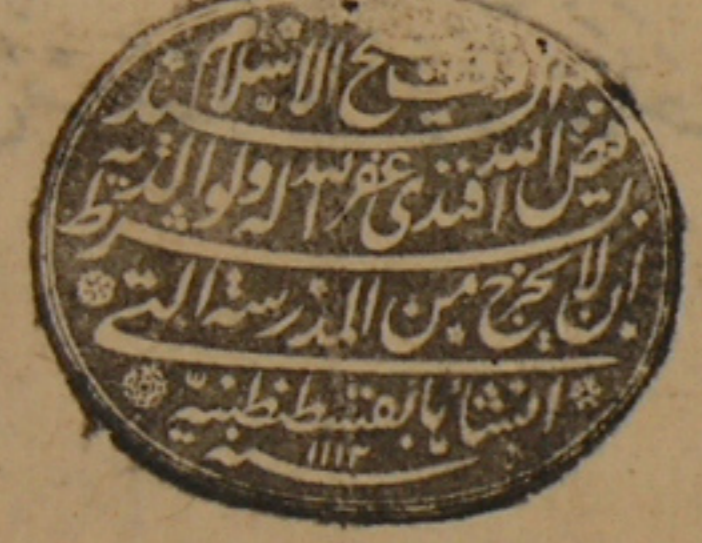 شيخ الاسلام السيد
فيض الله افندى غفر الله له ولوالديه
بشرط ان لا يخرج من المدرسة التى
انشأها بقسطنطنيه
سنه ١١١٢